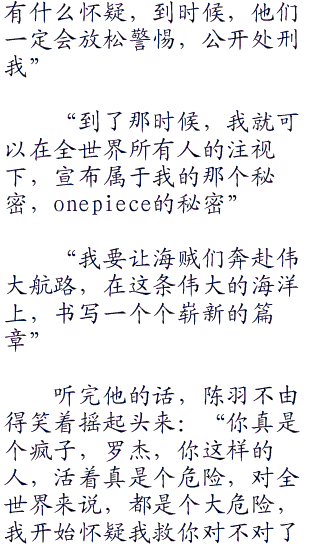 有什么怀疑，到时候，他们
一定会放松警惕，公开处刑
我”
“到了那时候，我就可
以在全世界所有人的注视
下，宣布属于我的那个秘
密，onepiece的秘密”
“我要让海贼们奔赴伟
大航路，在这条伟大的海洋
上，书写一个个崭新的篇
章”
听完他的话，陈羽不由
得笑着摇起头来：“你真是
个疯子，罗杰，你这样的
人，活着真是个危险，对全
世界来说，都是个大危险，
我开始怀疑我救你对不对了